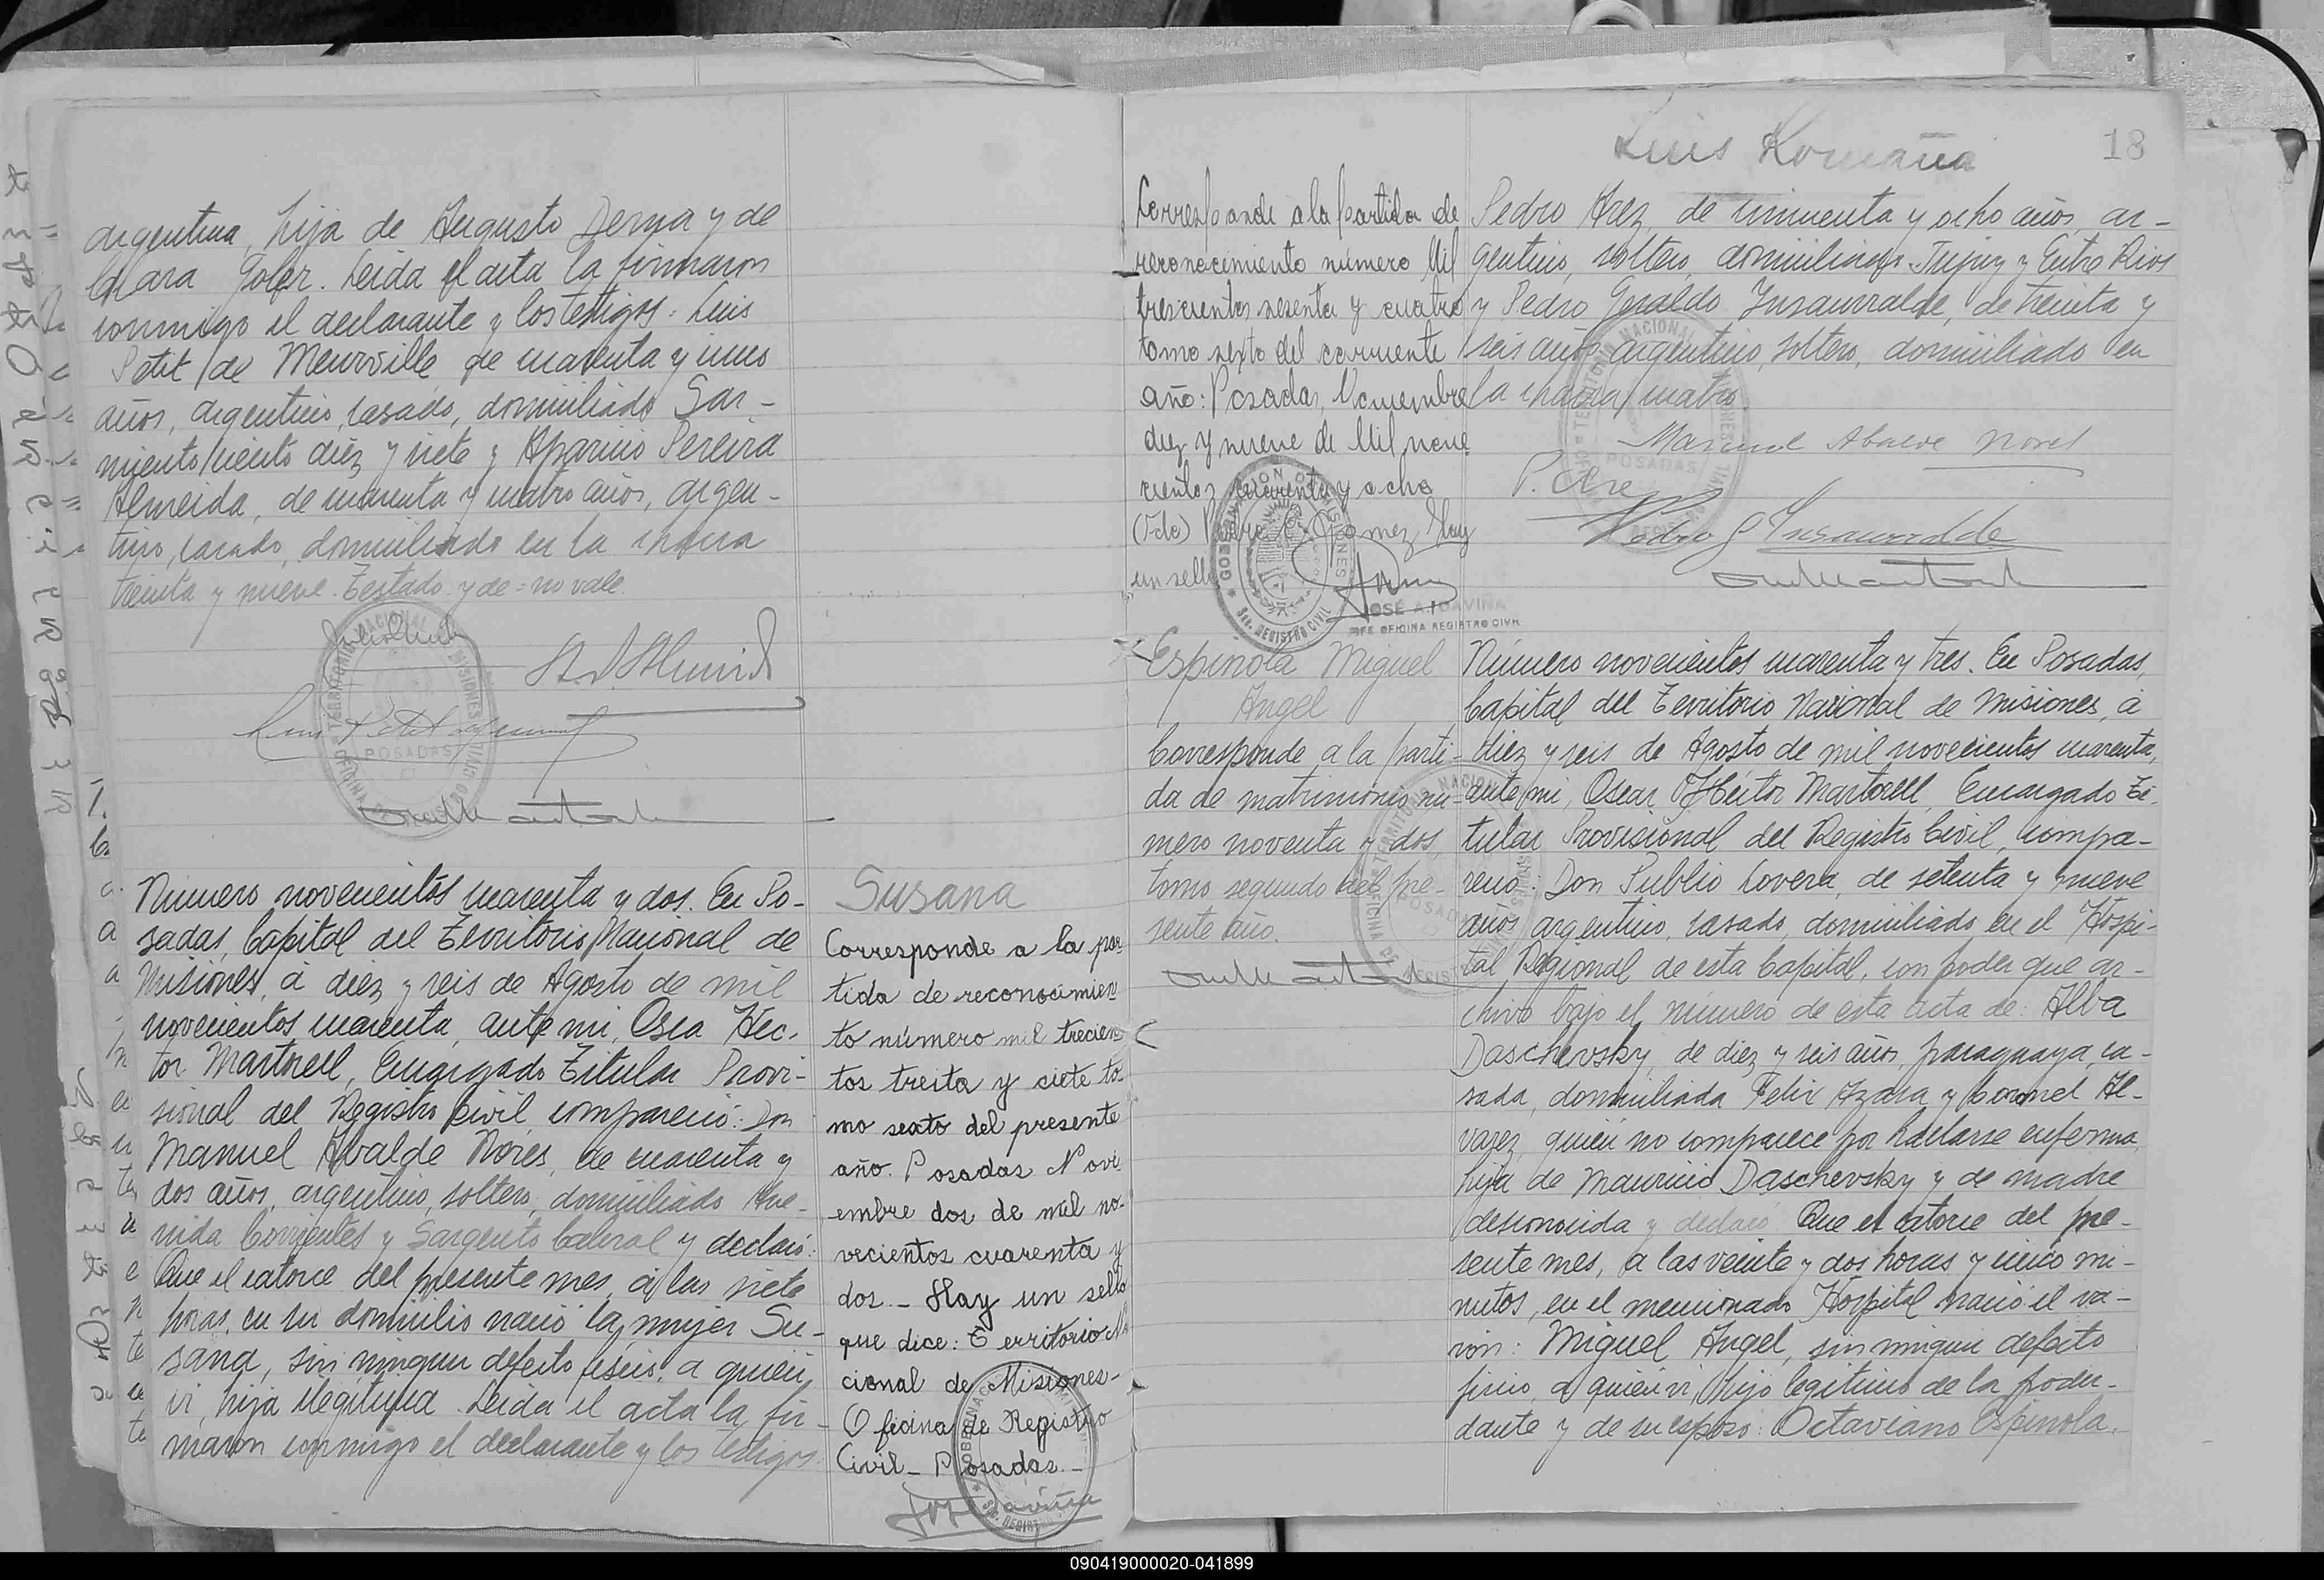 argentina, hija de Augusto Derna y de
Clara Goler. Leida el acta la firmaron
conmigo el declarante y los testigos: Luis
Petit de Meurville de cuarenta y
años, argentino, casado, domiciliado Sar-
miento ciento diez y siete y Aparicio Pereira
Almeida, de cuarenta y cuatro años, argen-
tino, casado, domiciliado en la chacra
treinta y nueve. Testado y de = no vale.
POSADAS
Número novecientos cuarenta y dos. En Po-
sadas, Capital del Territorio Nacional de
Misiones, á diez y seis de Agosto de mil
novecientos cuarenta, ante mi, Osca Héc-
tor Martorell, Encargado Titular Provi-
sional del Registro Civil, compareció: Don
Manuel Abalde Nores, de cuarenta y
dos años, argentino, soltero, domiciliado Ave-
nida Corrientes y Sargento Cabral y declaró:
Que el catorce del presente mes, á las siete
horas, en su domicilio nació la mujer Su-
sana, sin ningun defecto físico, a quien
vi, hija ilegitima. Leida el acta la fir-
maron conmigo el declarante y los testigos:
Susana
Corresponde a la par
tida de reconocimien
to número mil trecien
tos treita y ciete to-
mo sexto del presente
año. Posadas Novi
embre dos de mil no-
vecientos cuarenta y
dos. - Hay un sello
que dice: Territorio Na
cional de Misiones-
Oficina de Registro
Civil - Posadas. -
Luis Romaña
18
Corresponde a la partida de
reconocimiento número Mil
trescientos sesenta y cuatro
tomo sexto del corriente
año: Posadas, Noviembre
diez y nueve de Mil nove
cientos cuarenta y ocho
(Fdo) Gomez, Hay
un sello
JOSÉ A. DAVIÑA
JEFE OFICINA REGISTRO CIVIL
Pedro Arez, de cincuenta y ocho años, ar-
gentino, soltero, domiciliado Jujuy y Entre Rios
y Pedro Geraldo Insaurralde, de treinta y
seis años, argentino, soltero, domiciliado en
la chacra cuatro.
Manuel Abalde Nores
Pedro G Insaurralde
Espinola Miguel
Angel
Corresponde a la parti-
da de matrimonio nú-
mero noventa y dos
tomo segundo del pre-
sente año.
Número novecientos cuarenta y tres. En Posadas,
Capital del Territorio Nacional de Misiones, á
diez y seis de Agosto de mil novecientos cuarenta,
ante mi, Oscar Héctor Martorell, Encargado Ti-
tular Provisional del Registro Civil, compa-
reció: Don Publio Lovera, de setenta y nueve
años, argentino, casado, domiciliado en el Hospi-
tal Regional de esta Capital, con poder que ar-
chivo bajo el número de esta acta de: Alba
Daschevsky, de diez y seis años, paraguaya, ca-
sada, domiciliada Felix Azara y Coronel Al-
varez, quien no comparece por hallarse enferma,
hija de Mauricio Daschevsky y de madre
desconocida y declaró: Que el catorce del pre-
sente mes, a las veinte y dos horas y cinco mi-
nutos, en el mencionado Hospital nació el va-
ron: Miguel Angel, sin ningun defecto
fisico, a quien vi, hijo legitimo de la poder-
dante y de su esposo: Octaviano Espinola.
090419000020-041899